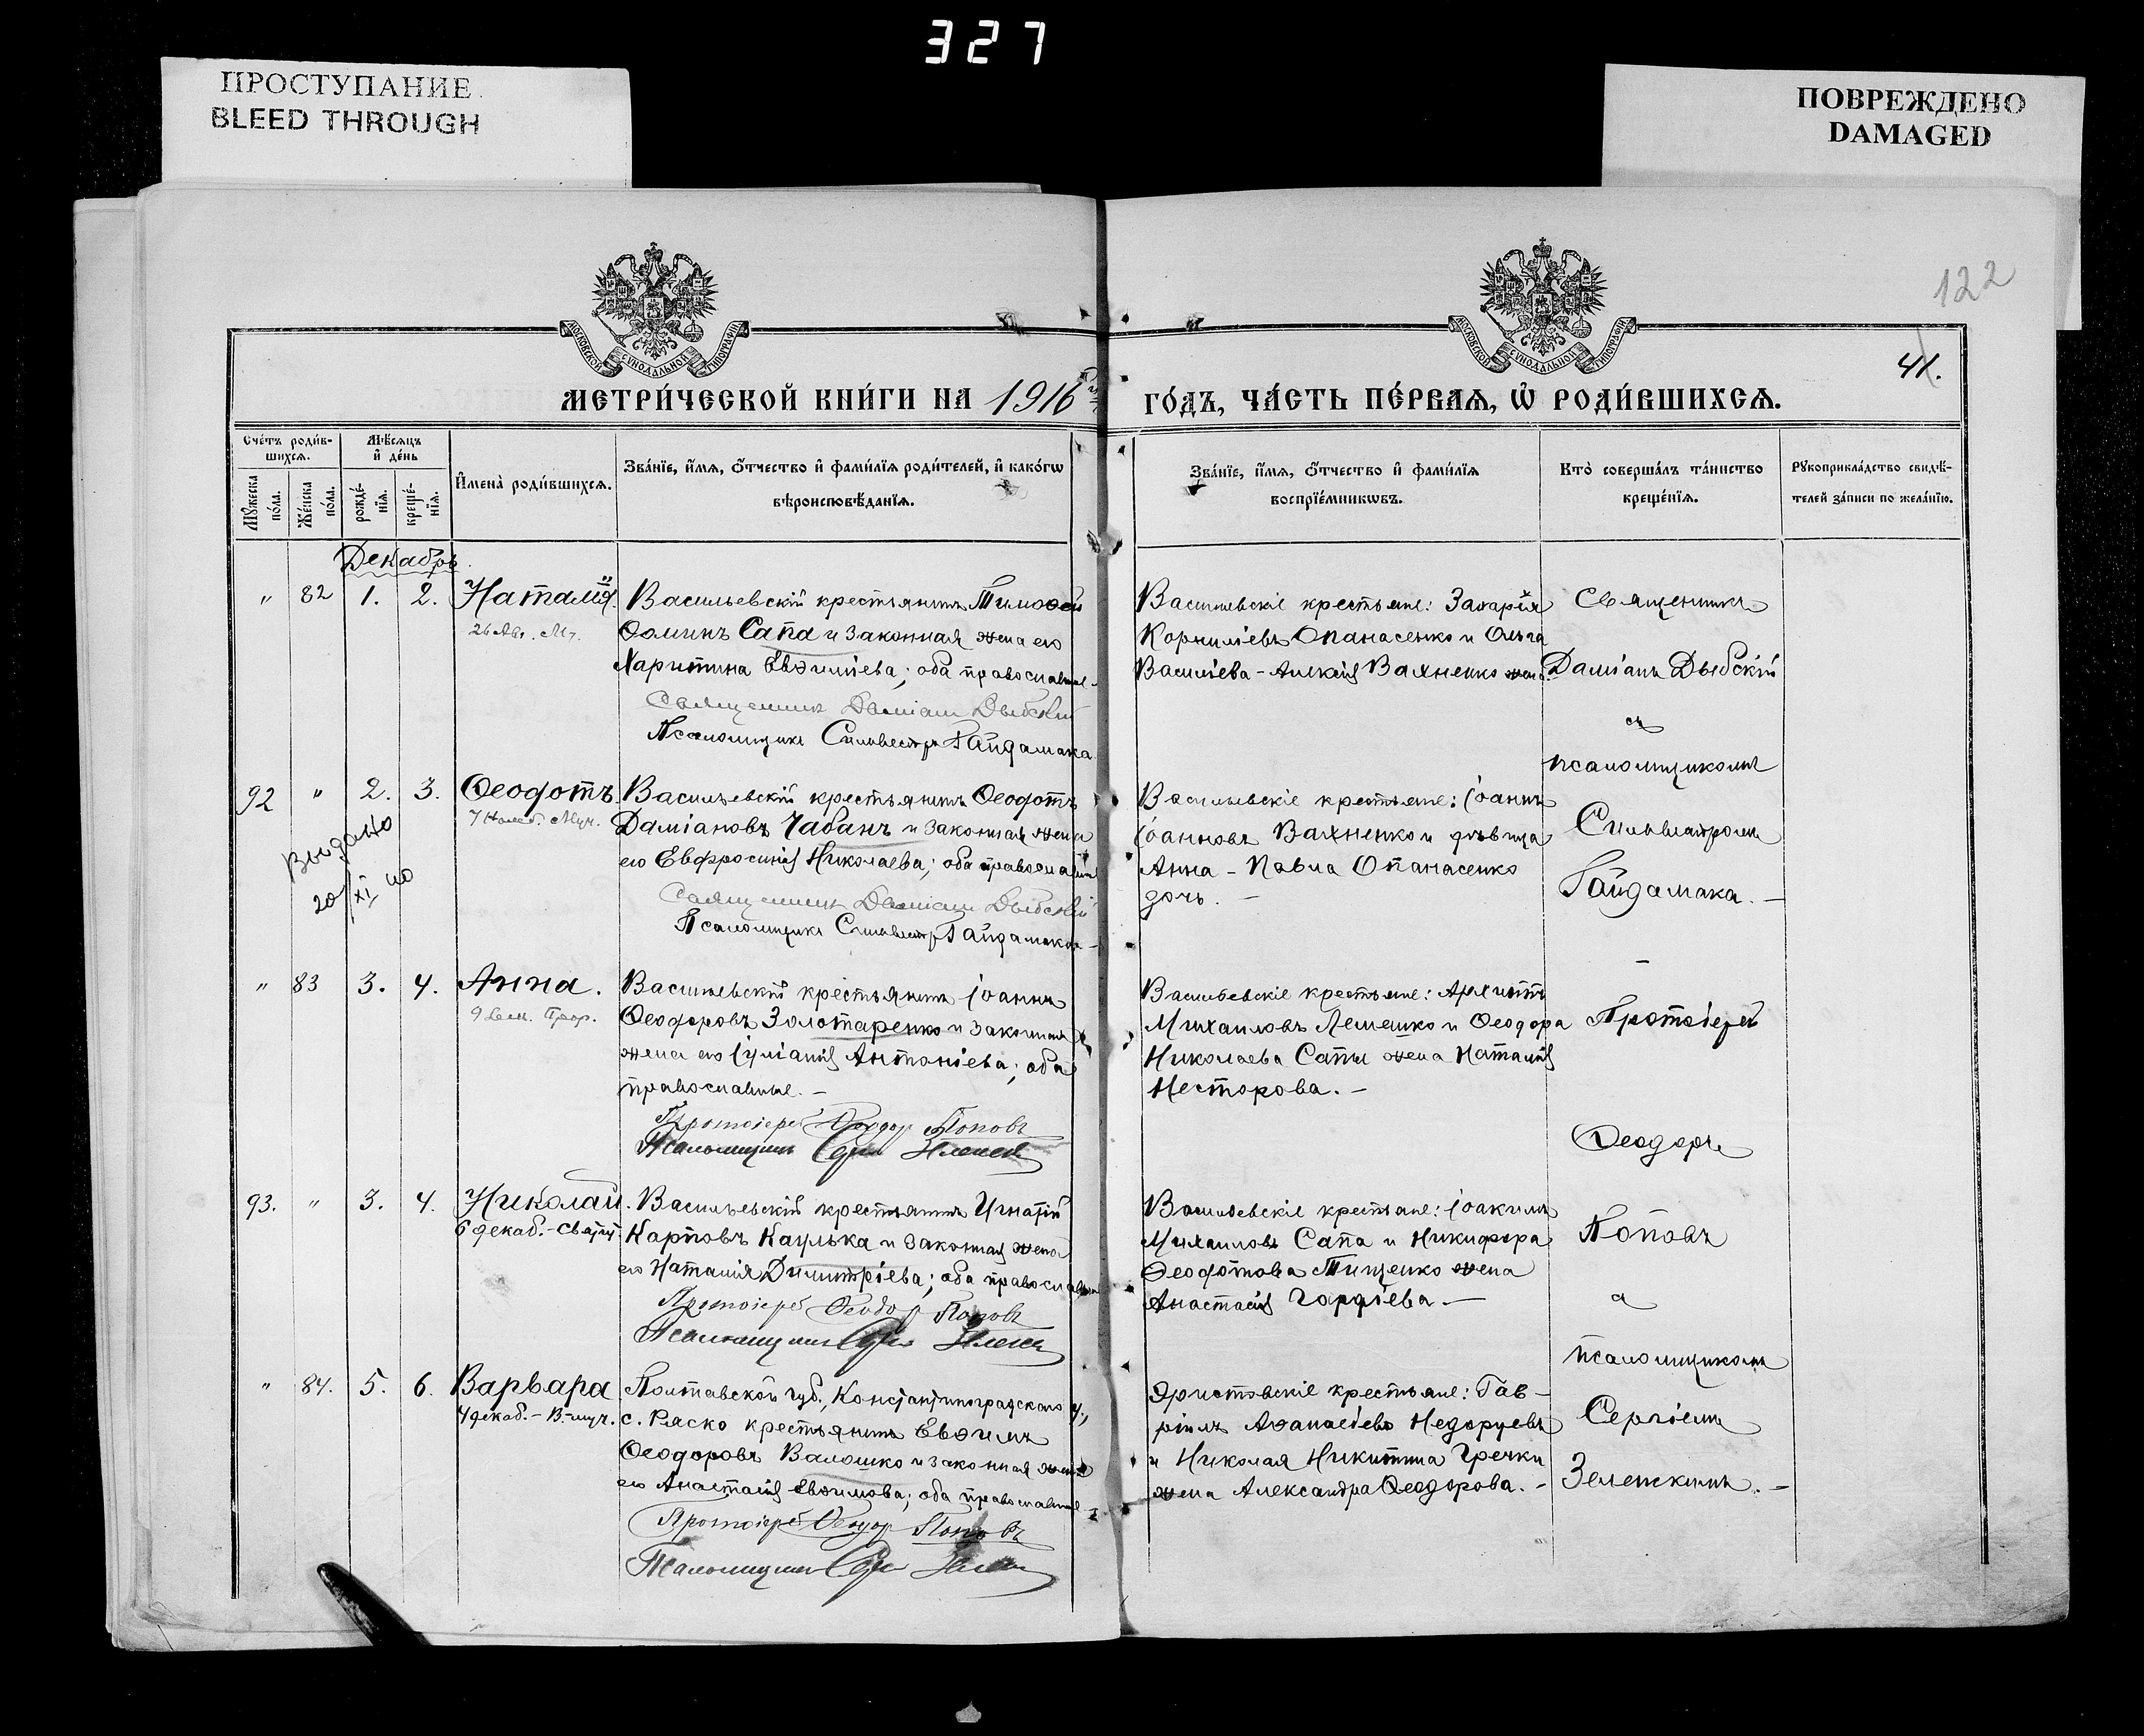 327
ПРОСТУПАНИЕ
BLEED THROUGH
ПОВРЕЖДЕНО
DAMAGED
122
41.
МОСКОВСКОЙ СУНОДАЛЬНОЙ ТИПОГРАФІИ
МОСКОВСКОЙ СУНОДАЛЬНОЙ ТИПОГРАФІИ
МЕТРИ́ЧЕСКОЙ КНИ́ГИ НА 1916 ГО́ДЪ, ЧА́СТЬ ПЕ́РВАЯ, Ѽ РОДИ́ВШИХСЯ.
Сче́тъ роди́в-
шихся.
Мѣ́сяцъ
и҆ де́нь
Му́жеска по́ла.
Же́нска по́ла.
рожде́нїя.
креще́нїя.
И҆мена̀ роди́вшихся.
Зва́нїе, и҆́мя, ѻ҆́тчество и҆ фами́лїя роди́телей, и҆ како́гѡ
вѣроисповѣ́данїя.
Зва́нїе, и҆́мя, ѻ҆́тчество и҆ фами́лїя
воспрїе́мникѡвъ.
Кто̀ соверша́лъ та́инство
креще́нїя.
Рꙋкоприкла́дство свидѣ́-
телей за́писи по жела́нїю.
Декабрь
" 82 1. 2. Наталія.
26 Авг. Мч.
Васильевскій крестьянинъ Тимоѳей
Ѳоминъ Сапа и законная жена его
Харитина Евѳиміева; оба православные.
Священникъ Даміанъ Дыбскій
Псаломщикъ Сильвестръ Гайдамака
Васильевскіе крестьяне: Захарія
Корниліевъ Опанасенко и Ольга
Василіева - Алексія Вахненко жена.
Священникъ
Даміанъ Дыбскій
съ
псаломщикомъ
Сильвестромъ
Гайдамака. -
92 " 2. 3. Ѳеодотъ.
7 Нояб. Муч.
Выдано
20/XI
Васильевскій крестьянинъ Ѳеодотъ
Даміановъ Чабанъ и законная жена
его Евфросинія Николаева; оба православные
Священникъ Даміанъ Дыбскій
Псаломщикъ Сильвестръ Гайдамака -
Васильевскіе крестьяне: Іоаннъ
Іоанновъ Вахненко и дѣвица
Анна - Павла Опанасенко
дочь. -
" 83 3. 4. Анна.
Васильевскій крестьянинъ Іоаннъ
Ѳеодоровъ Золотаренко и законная
жена его Іуліанія Антоніева; оба
православные. -
Протоіерей Ѳеодор Попов
Псаломщикъ
Васильевскіе крестьяне: Архиппъ
Михаиловъ Лемешко и Ѳеодора
Николаева Сапы жена Наталія
Несторова. -
Протоіерей
Ѳеодоръ
Поповъ
93. " 3. 4. Николай.
6 декаб. - Святит.
Васильевскій крестьянинъ Игнатій
Карповъ Каулька и законная жена
его Наталія Димитріева; оба православные
Протоіерей Ѳеодор Поповъ
Псаломщикъ
Васильевскіе крестьяне: Іоакимъ
Михаиловъ Сапа и Никифора
Ѳеодотова Тищенко жена
Анастасія Гордіева. -
псаломщикомъ
Сергіемъ
Зеленскимъ. -
" 84. 5. 6. Варвара
4 декаб. - В.-муч.
Полтавской губ., Константиноградскаго у.,
с. Ряско крестьянинъ Евѳимъ
Ѳеодоровъ Валошко и законная жена
его Анастасія Евѳимова; оба православные
Протоіерей Ѳеодор Поповъ
Псаломщикъ
крестьяне: Гав-
ріилъ Аѳанасіевъ
и Николая Никитина Гречки
жена Александра Ѳеодорова. -